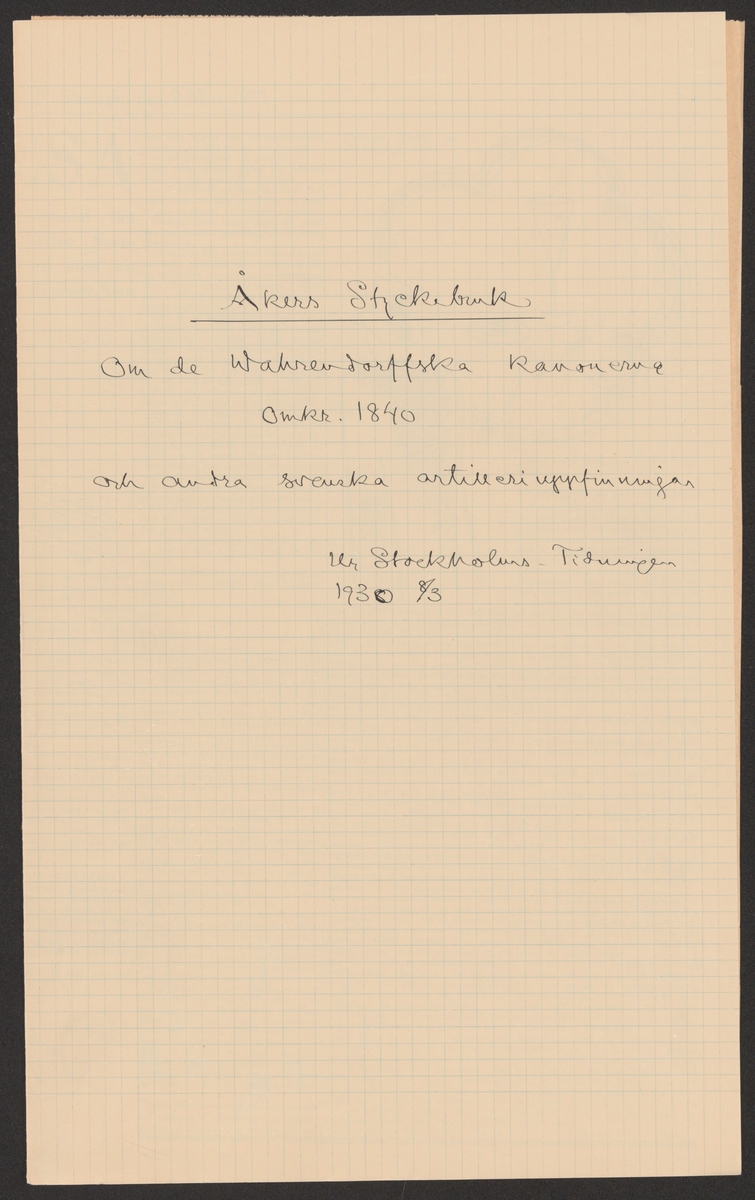 Åkers Styckebruk
Om de Wahrendorffska kanonerna
Omkr. 1840
och andra svenska artilleriuppfinningar
Ur Stockholms-Tidningen
1930 8/3